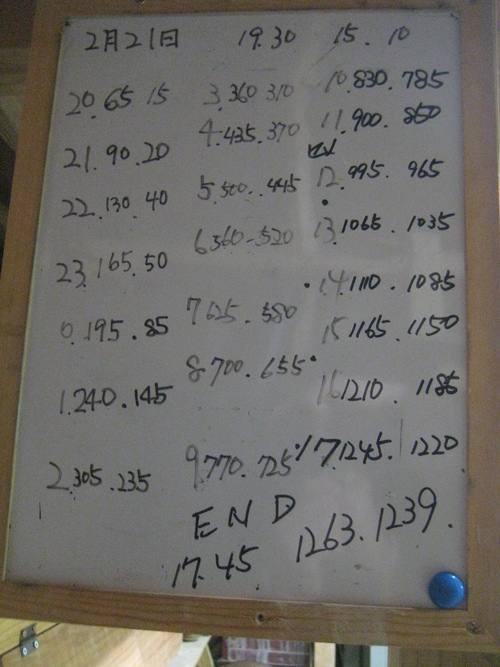 2月21日 19.30 15.10
20.65 15
21.90.20
22.130.40
23.165.50
0.195.85
1.240.145
2.305.235
3.360 310
4.435.370
5.500.445
6.560-520
7 625.580
8.700.655
9.770.725
10.830.785
11.900.860
12.995.965
13.1065.1035
14.1110.1085
15 1165.1150
16 1210.1186
17.1245.1220
END
17.45 1263.1239.